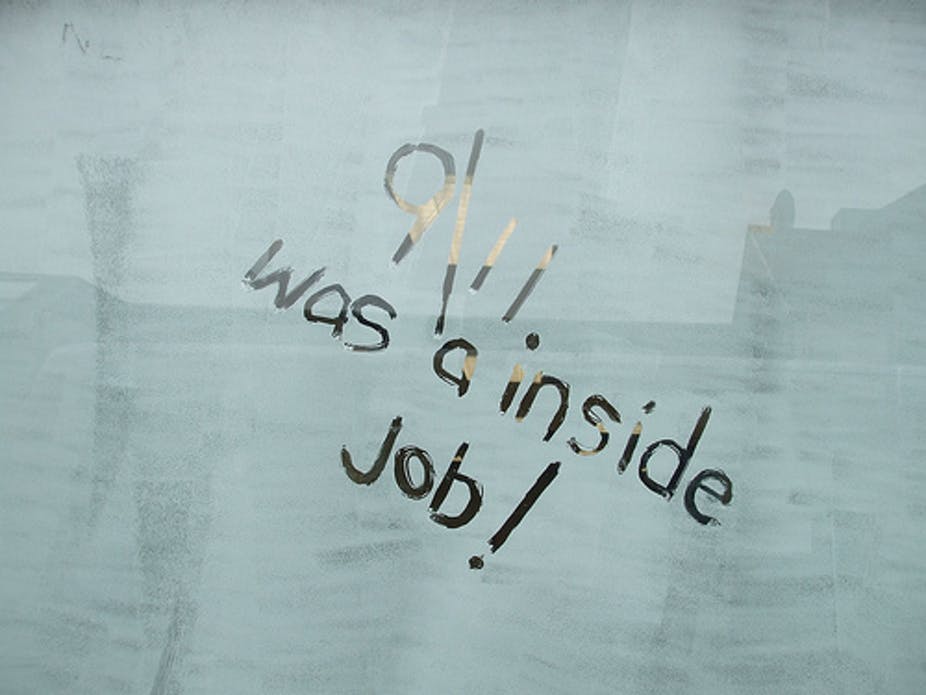 9/11
was a inside
Job!